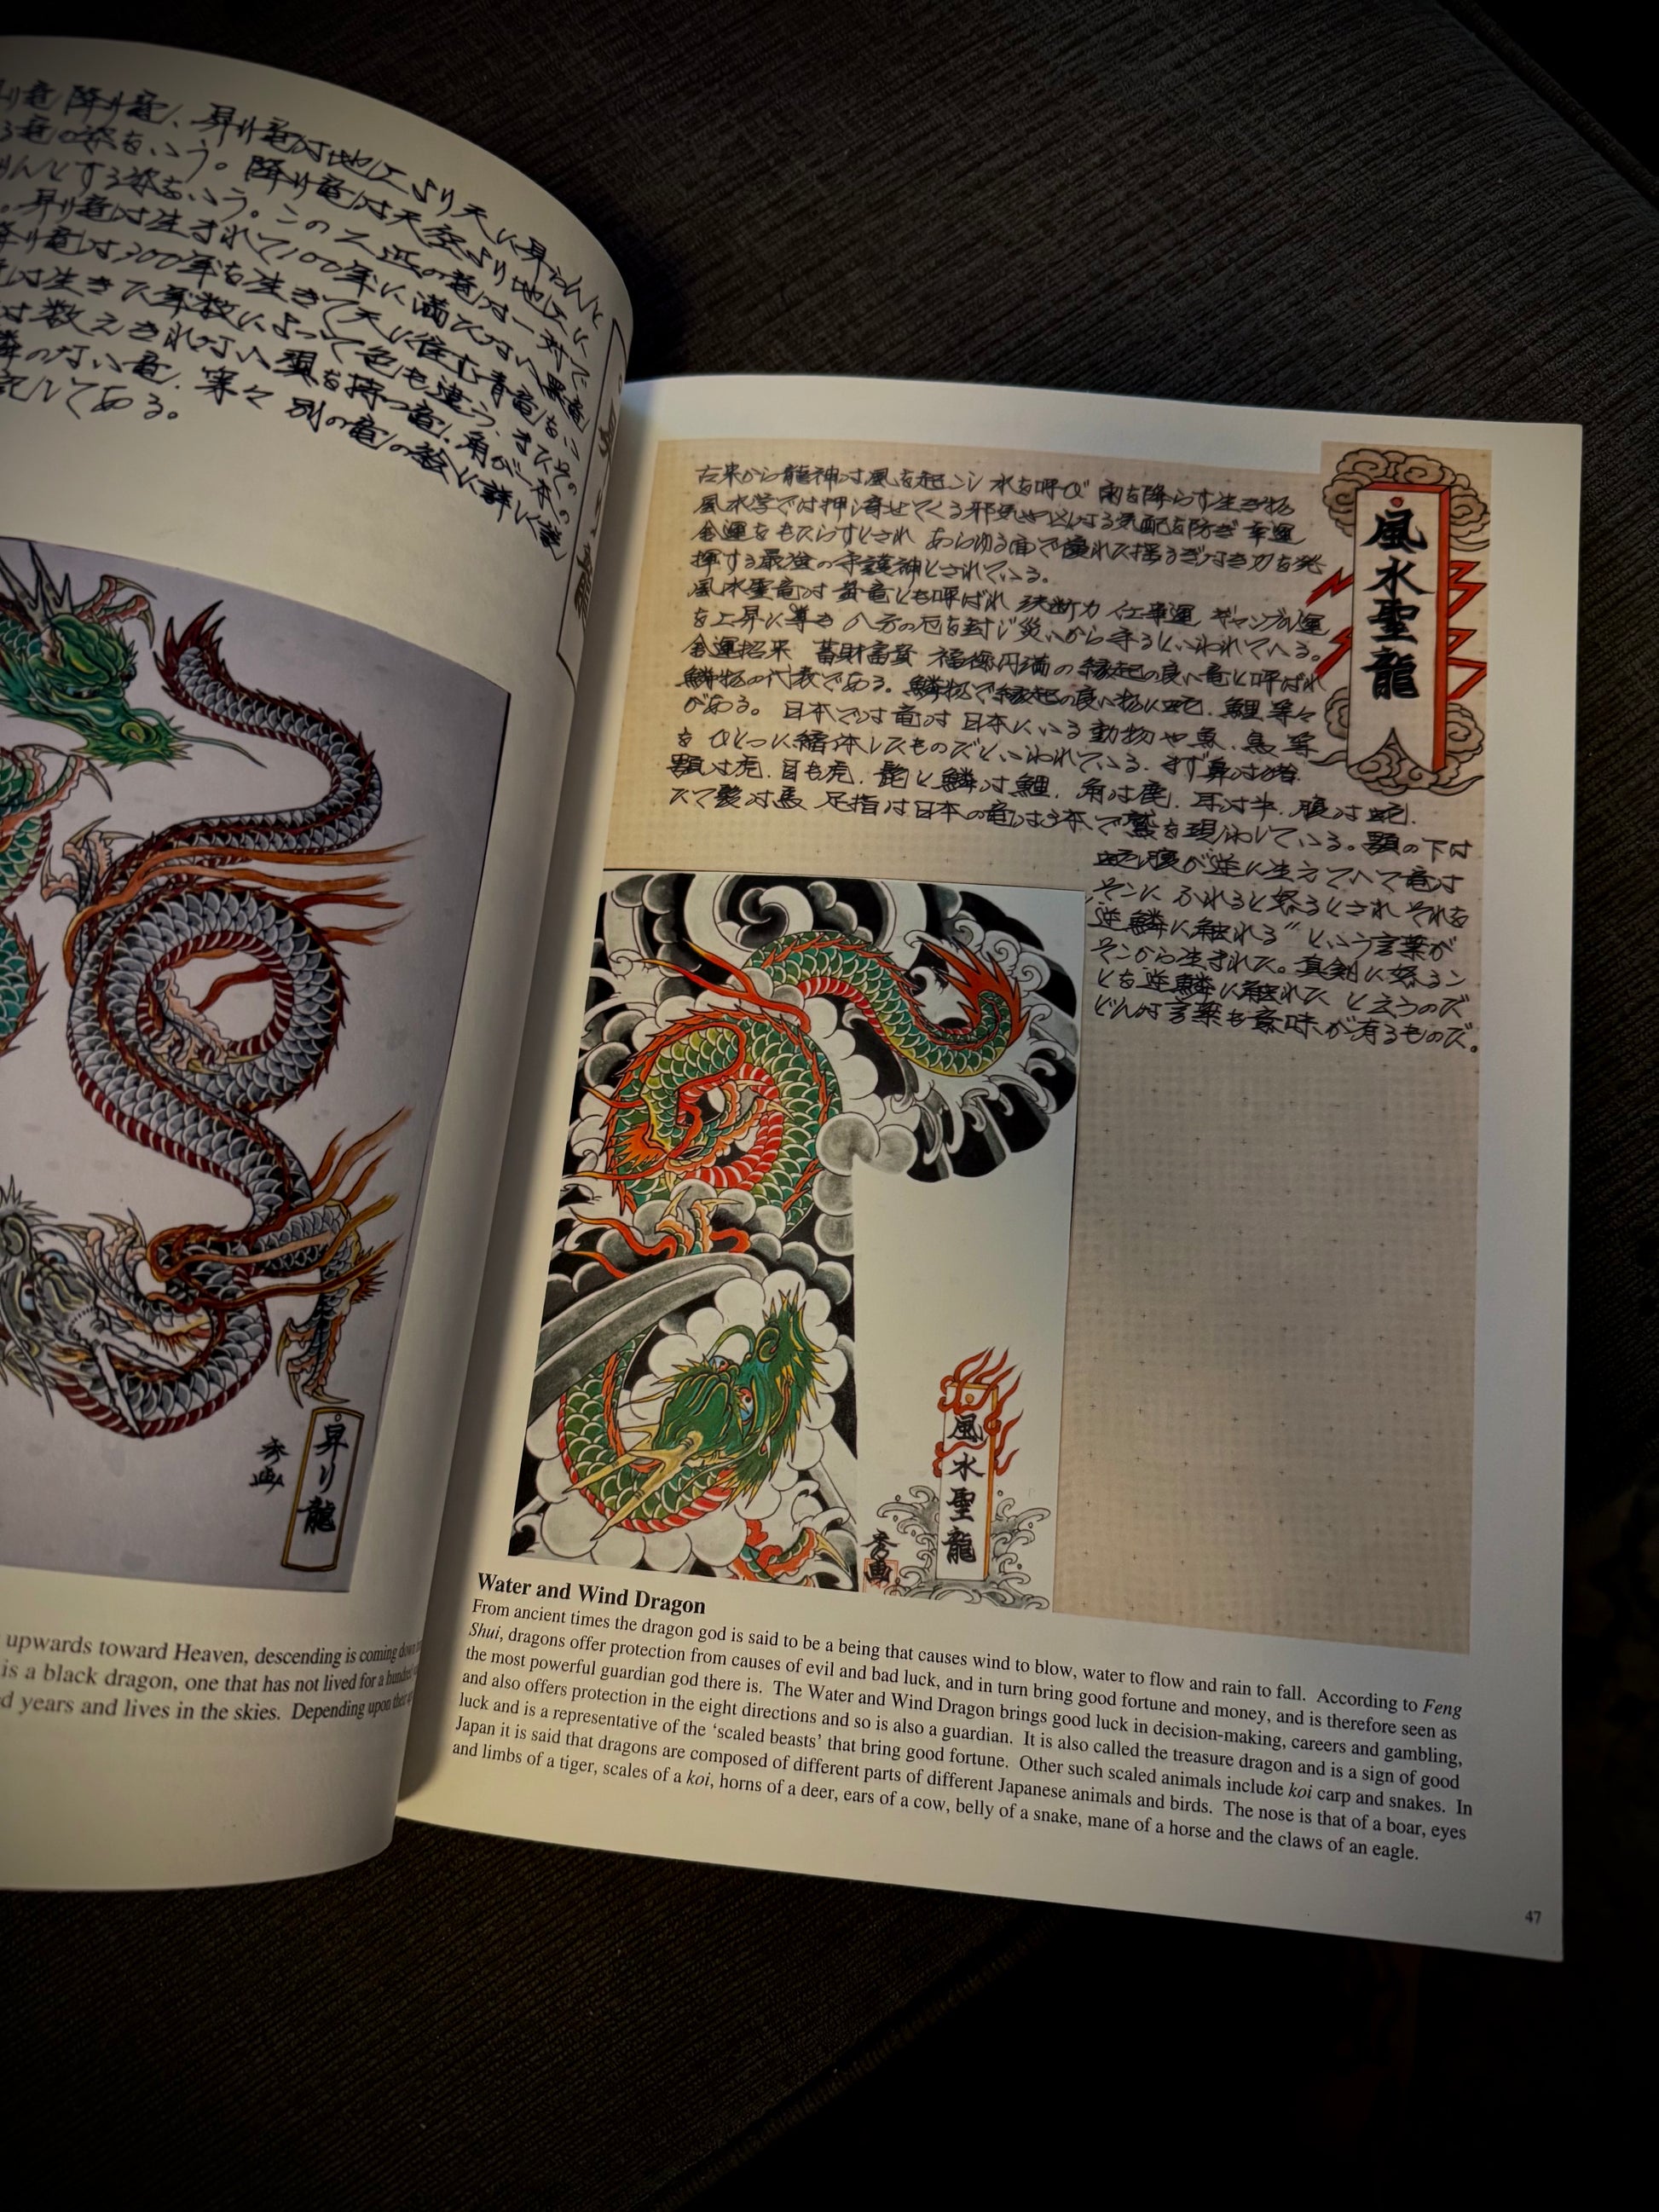 り竜 降り竜、昇り竜は地上より天に昇らんと
る竜の姿をいう。降り竜は天空より地上に
んとする姿をいう。この二匹の竜は一対で
昇り竜は生まれて100年に満たない黒竜
降り竜は300年を生きて天に住む青竜をいう
は生きた年数によって色も違う、また
は数えきれない頭を持つ竜、角が一本の
鱗のない竜、寒々 別の竜の絵に詳しく
記してある。
昇り龍
秀画
upwards toward Heaven, descending is coming down
is a black dragon, one that has not lived for a hundred
d years and lives in the skies. Depending upon
古来から龍神は風を起こし 水を呼び 雨を降らす生き物
風水学では押し寄せてくる邪気や凶なる気配を防ぎ 幸運
金運をもたらすとされ あらゆる面で優れた揺るぎ付き力を発
揮する最強の守護神とされている。
風水聖竜は 黄竜とも呼ばれ 決断力 仕事運 ギャンブル運
を上昇に導き 八方の厄を封じ災いから守るといわれている。
金運招来 蓄財富貴 福徳円満の縁起の良い竜と呼ばれ
鱗物の代表である。鱗物で縁起の良い物に蛇、鯉等々
がある。日本では竜は日本にいる動物や魚、鳥等
をひとつに縮体したものだといわれている、まず鼻は猪
顎は虎、目も虎、髭と鱗は鯉、角は鹿、耳は牛、腹は蛇、
たて髪は馬 足指は日本の竜は3本で鷲を現わしている。顎の下は
蛇腹が逆に生えてへて竜は
そこに ふれると怒るとされ それを
逆鱗に触れる" という言葉が
そこから生まれた。真剣に怒るこ
とを逆鱗に触れた と云うのだ
どんな言葉も意味が有るものだ。
風水聖龍
風水聖龍
秀画
Water and Wind Dragon
From ancient times the dragon god is said to be a being that causes wind to blow, water to flow and rain to fall. According to Feng
Shui, dragons offer protection from causes of evil and bad luck, and in turn bring good fortune and money, and is therefore seen as
the most powerful guardian god there is. The Water and Wind Dragon brings good luck in decision-making, careers and gambling,
and also offers protection in the eight directions and so is also a guardian. It is also called the treasure dragon and is a sign of good
luck and is a representative of the 'scaled beasts' that bring good fortune. Other such scaled animals include koi carp and snakes. In
Japan it is said that dragons are composed of different parts of different Japanese animals and birds. The nose is that of a boar, eyes
and limbs of a tiger, scales of a koi, horns of a deer, ears of a cow, belly of a snake, mane of a horse and the claws of an eagle.
47